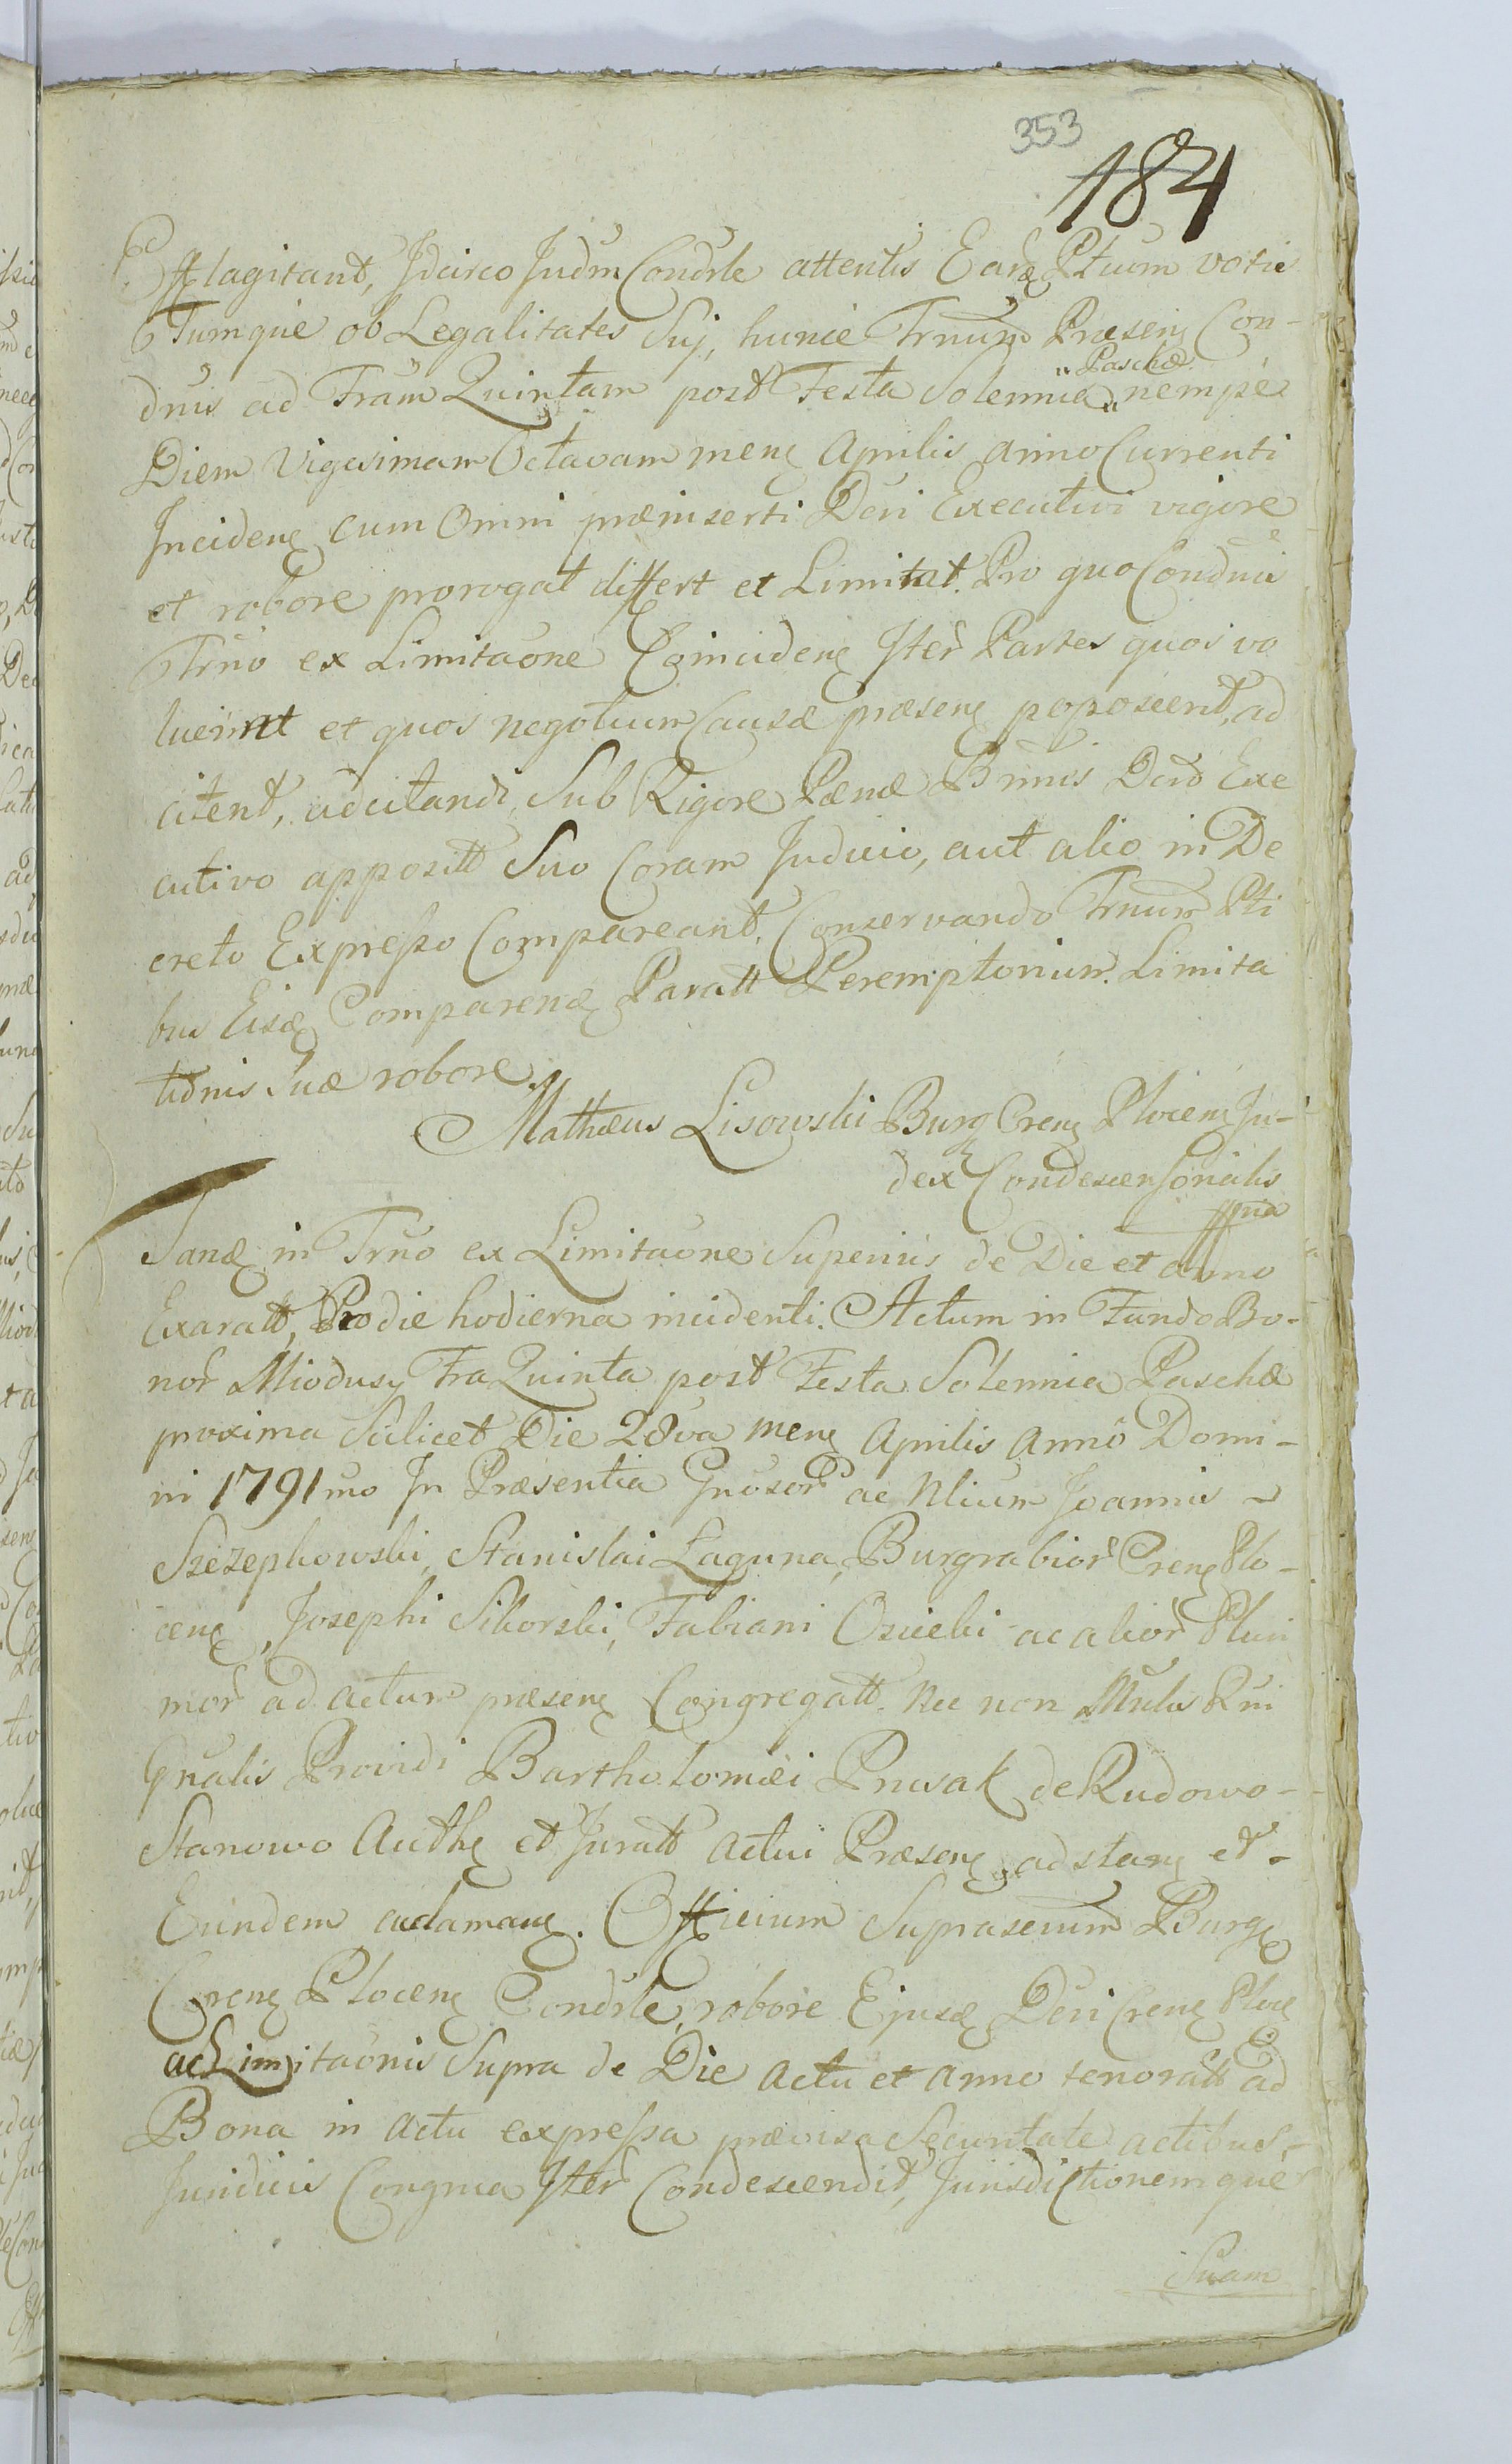 353
184
Efflagitant, Idcirco Judm Condrle attentis Earz Ptium votis
Tumque ob Legalitates Suj, hunce Trnum Præsenz Con-
dnis ad Fram Quintam post Festa Solennia "Paschæ" nempè
Diem Vigesimam Octavam menz Aprilis anno Currenti
Incidenz cum Omni præinserti Dcri Executivi vigore
et robore prorogat differt et Limitat. Pro quo Condnis
Trno ex Limitaone Coincidenz Iter Partes quos vo
luerint et quos negotium Causæ præsenz poposcerit, ad
citent, adcitandi, Sub Rigore Pænæ Bnnis Dcto Exe
cutivo apposítt Suo Coram Judicio, aut alio in De
creto Expresso Compareant. Conservando Trnum Pti
bus Eisdz Comparenz Paratt Peremptorium. Limita
tionis Suæ robore.
Mathæus Lisowski Burg Crenz Plocenz Ju-
dex Condescensorialis
mpria
Tandz in Trno ex Limitaone Superius de Die et anno
Exaratt, Pro die hodierna incidenti. Actum in Fundo Bo-
nor Miodusy Fra Quinta post Festa Solennia Paschæ
proxima Scilicet Die 28va menz Aprilis Anno Domi-
ni 1791mo In Præsentia Gnosor ac Nlium Joannis
Szczepkowski, Stanislai Laguna, Burgrabior Crenz Plo-
cenz, Josephi Sikorski, Fabiani Osiecki ac alior Pluri
mor ad actum præsenz Congregatt. Nec non Mnlis Rni
Gnralis Providi Bartholomæi Prusak de Rudowo-
Stanowo Authz et Juratt actui Præsenz adstanz et
Eundem acclamanz. Officium Suprascrum Burg
Crenz Plocenz Condrle, robore Ejusdz Dcri Crenz Plocz
ac Limitaonis Supra de Die Actu et Anno tenoratt ad
Bona in Actu expressa prævisa Securitate actibus
Juridicis Congrua Iter Condescendit, Jurisdictionemque
Suam